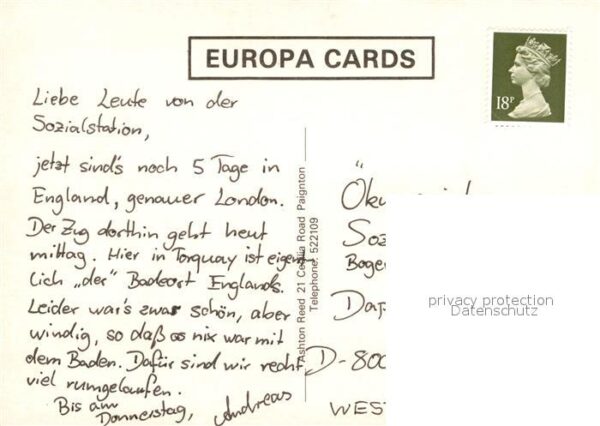 EUROPA CARDS
18P
Liebe Leute von der
Sozialstation,
jetzt sind's noch 5 Tage in
England, genauer London.
Der Zug dorthin geht heut
mittag. Hier in Torquay ist eigent
lich „der" Badeort Englands.
Leider war's zwar schön, aber
windig, so daß es nix war mit
dem Baden. Dafür sind wir recht
viel rumgelaufen.
Bis am
Donnerstag, Andreas
Ashton Reed 21 Cecilia Road Paignton
Telephone: 522109
Öku
Soz
Boge
D-800
WEST
privacy protection
Datenschutz